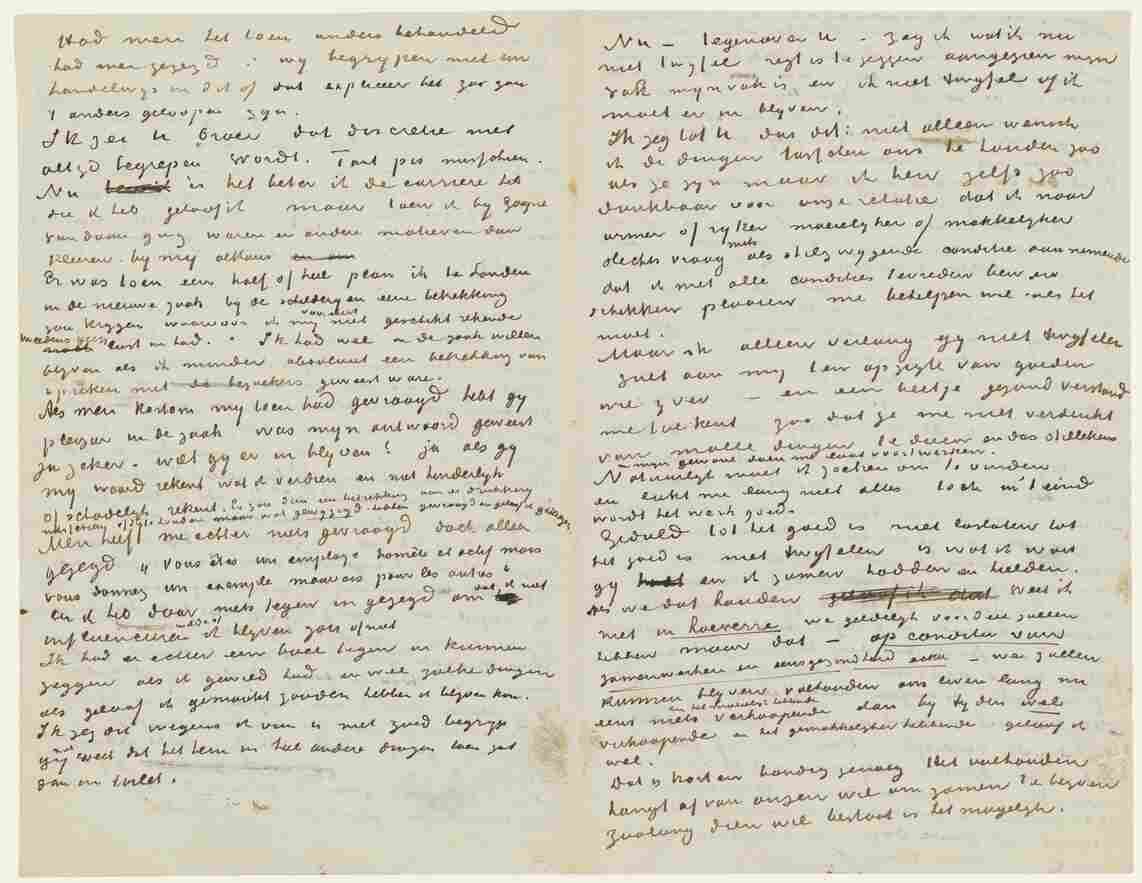 Had men het toen anders behandeld
had men gezegd : wy begrypen niet een
handelings in dit of dat expliceer het zoo zou
't anders geloopen zyn.
Ik zei U broer dat discretie niet
altyd begrepen wordt. Tant pis misschien.
Nu is het beter ik de carriere heb
die ik heb geloof ik maar toen ik by Goupil
vandaan ging waren er andere motieven dan
kleeren by my althans
Er was toen een half of heel plan ik te Londen
in de nieuwe zaak by de schilderyen eene betrekking
zou krygen waarvoor ik my niet geschikt rekende
lust in had. Ik had wel in de zaak willen
blyven als ik minder absoluut een betrekking van
spreken met de bezoekers geweest ware.
Als men kortom my toen had gevraagd hebt gy
pleizier in de zaak was myn antwoord geweest
ja zeker. Wilt gy er in blyven? ja als gy
my waard rekent wat ik verdien en niet hinderlyk
of schadelyk rekent.
Men heeft me echter niets gevraagd doch alleen
gezegd „ vous êtes un employé honnête et actif mais
vous donnez un exemple mauvais pour les autres "
en ik heb daar niets tegen in gezegd omdat ik niet
influenceren wilde of ik blyven zou of niet
Ik had er echter een boel tegen in kunnen
zeggen als ik gewild had en wel zulke dingen
als geloof ik gemaakt zouden hebben ik blyven kon.
Ik zeg dit wegens ik van is niet goed begryp
gy niet weet dat het hem in heel andere dingen toen zat
dan in toilet.
Nu — tegenover U — zeg ik wat ik nu
niet twyfel regt is te zeggen aangezien myn
vak myn vak is en ik niet twyfel of ik
moet er in blyven.
Ik zeg tot U dus dit: niet alleen wensch
ik de dingen tusschen ons te houden zoo
als ze zyn maar ik ben zelfs zoo
dankbaar voor onze relatie dat ik naar
armer of ryker moeielyker of makkelyker
slechts vraag als stilzwygende conditie aannemende
dat ik met alle condities tevreden ben en
schikken plooien me behelpen wil als het
moet.
Maar ik alleen verlang gy niet twyfelen
zult aan my ten opzigte van goeden
wil yver — en een beetje gezond verstand
me toekent zoo dat ge me niet verdenkt
van malle dingen te doen en dus stillekens
myn gewone doen me laat voortwerken.
Natuurlyk moet ik zoeken om te vinden
en lukt me lang niet alles toch in 't eind
wordt het werk goed.
Geduld tot het goed is niet loslaten tot
het goed is niet twyfelen is wat ik wou
gy en ik zamen hadden en hielden.
Als we dat houden weet ik
niet in hoeverre we geldelyk voordeel zullen
hebben maar dat — op conditie van
zamenwerken en eensgezindheid echter — we zullen
kunnen blyven volhouden ons leven lang nu
eens niets verkoopende en het moeielyk hebbende dan by tyden wel
verkoopende en het gemakkelyker hebbende geloof ik
wel.
Dat is kort en bondig genoeg Het volhouden
hangt af van onzen wil om zamen te blyven
Zoolang dien wil bestaat is het mogelyk.